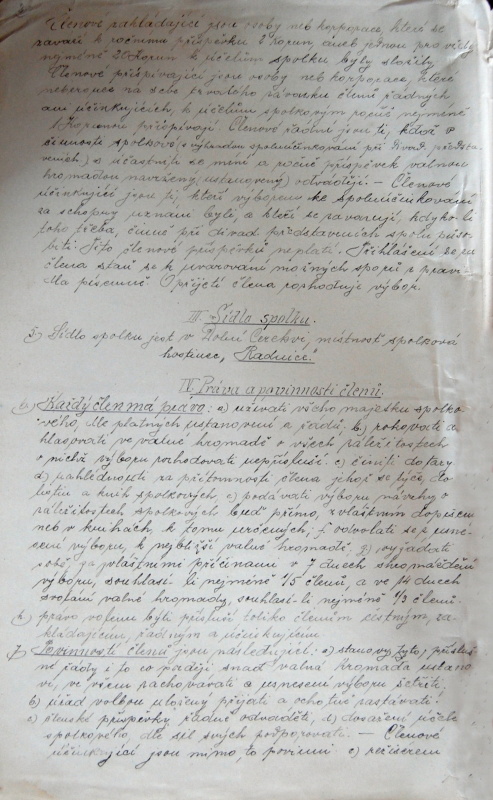 Členové zakládající jsou osoby neb korporace, které se
zaváží k ročnímu příspěvku 2 korun, aneb jednou pro vždy
nejméně 20 korun k účelům spolku byly složily.
Členové přispívající jsou osoby neb korporace, které
neberouce na sebe trvalého závazku členů řádných
ani účinkujících, k účelům spolkovým pouze nejméně
1 Korunou přispívají. Členové řádní jsou ti, kdož v
činnosti spolkové (s výhradou spoluúčinkování při divad. předsta-
veních) se účastniti se míní a roční příspěvek valnou
hromadou navržený, ustanovený odvádějí. — Členové
účinkující jsou ti, kteří výborem ke spoluúčinkování
za schopny uznáni byli, a kteří se zavazují, kdykoli
toho třeba, činně při divad. představeních spolu půso-
biti. Tito členové příspěvků neplatí. Přihlášení za
člena staň se k uvarování možných sporů z pravi-
dla písemně. O přijetí člena rozhoduje výbor.
III. Sídlo spolku.
5) Sídlo spolku jest v Dolní Cerekvi, místnost spolková
hostinec „Radnice“.
IV. Práva a povinnosti členů.
6) Každý člen má právo: a) užívati všeho majetku spolko-
vého, dle platných ustanovení a řádů. b) rokovati a
hlasovati ve valné hromadě o všech záležitostech
o nichž výboru rozhodovati nepřísluší. c) činiti dotazy.
d) nahlédnouti za přítomnosti člena jehož se týče, do
listin a knih spolkových, e) podávati výboru návrhy o
záležitostech spolkových buď přímo, zvláštním dopisem
neb v knihách, k tomu určených; f) odvolati se z usne-
sení výboru, k nejbližší valné hromadě. g) vyžádati
sobě, za zvláštními příčinami v 7 dnech shromáždění
výboru, souhlasí-li nejméně 1/5 členů, a ve 14 dnech
svolání valné hromady, souhlasí-li nejméně 1/3 členů.
h) právo voleni býti přísluší toliko členům čestným, za-
kládajícím, řádným a účinkujícím.
7) Povinnosti členů jsou následující: a) stanovy tyto, přísluš-
né řády i to co později snad valná hromada ustano-
ví, ve všem zachovávati a usnesení výboru šetřiti.
b) úřad volbou uložený přijati a ochotně zastávati.
c) členské příspěvky řádně odváděti, d) dosažení účele
spolkového, dle sil svých podporovati. — Členové
účinkující jsou mimo to povinni: e) režiserem